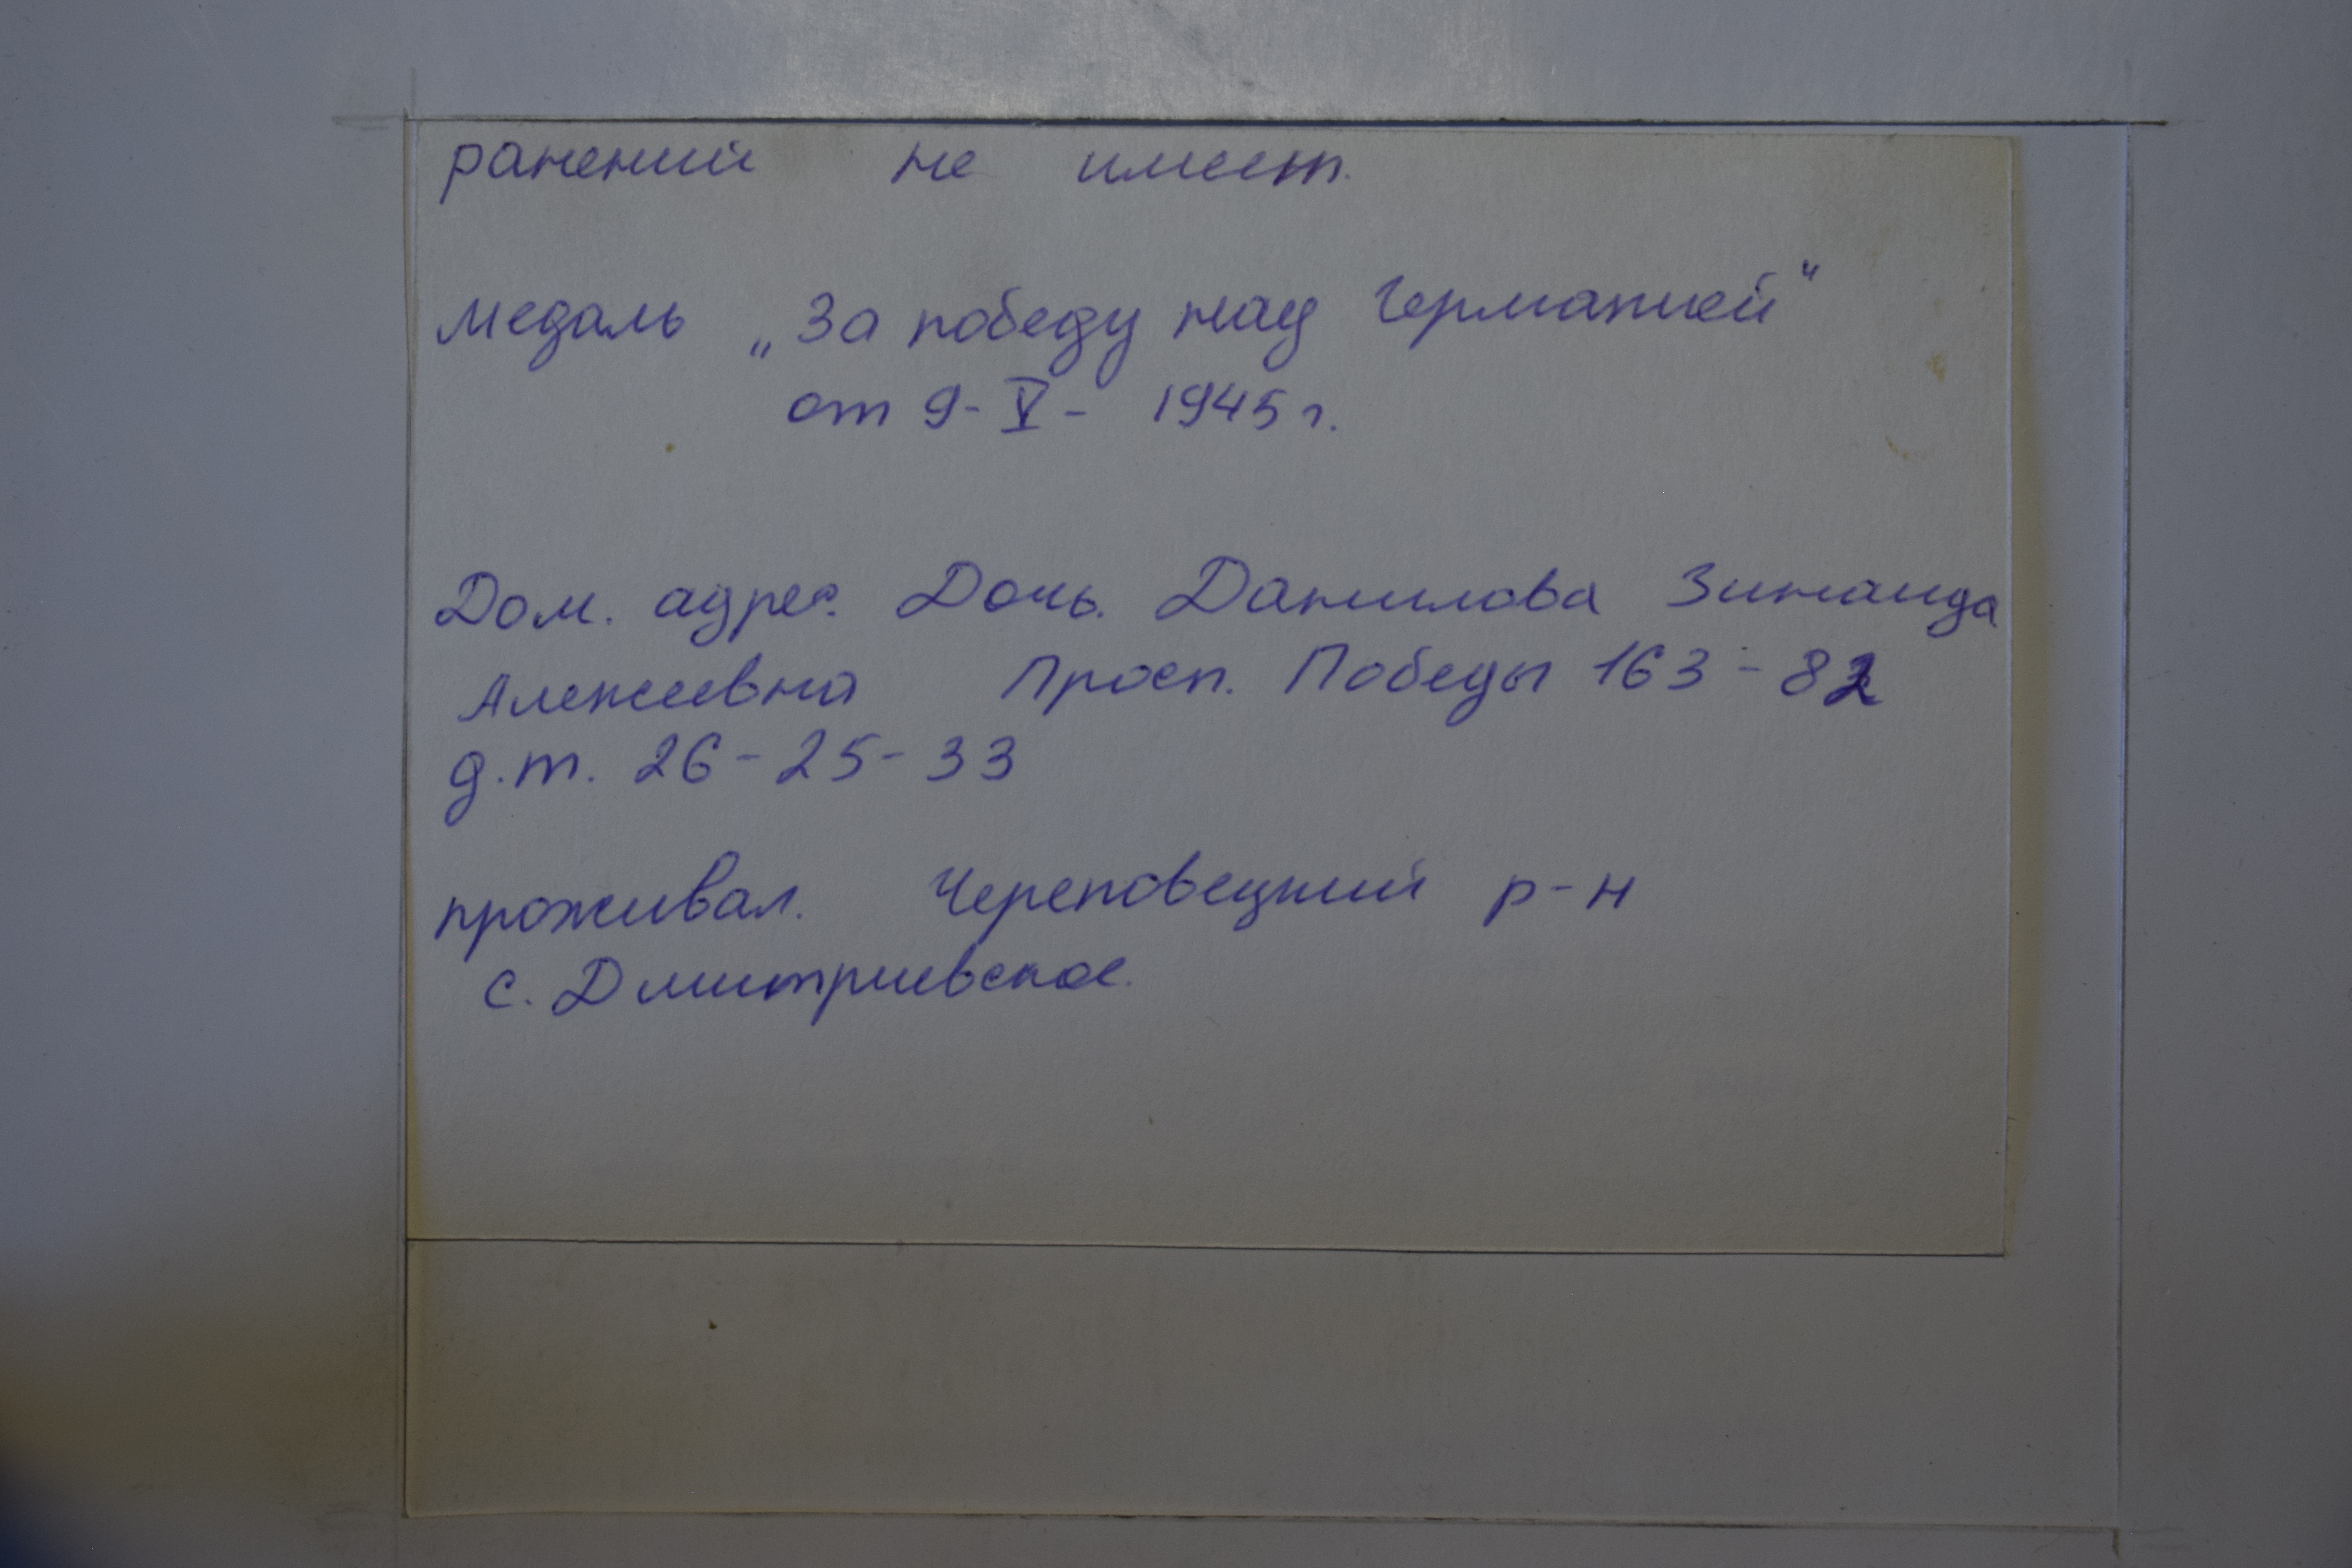 ранений не имеет.
медаль „За победу над Германией“
от 9-V- 1945 г.
Дом. адрес. Дочь. Данилова Зинаида
Алексеевна Просп. Победы 163-82
д.т. 26-25-33
проживал. Череповецкий р-н
с. Дмитриевское.